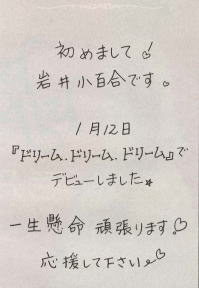 初めまして!
岩井小百合です。
1月12日
『ドリーム.ドリーム.ドリーム』で
デビューしました★
一生懸命 頑張ります♡
応援して下さい♡